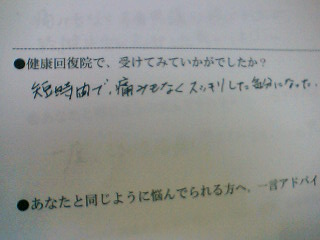 ●健康回復院で、受けてみていかがでしたか?
短時間で、痛みもなくスッキリした気分になった.
●あなたと同じように悩んでられる方へ、一言アドバイ